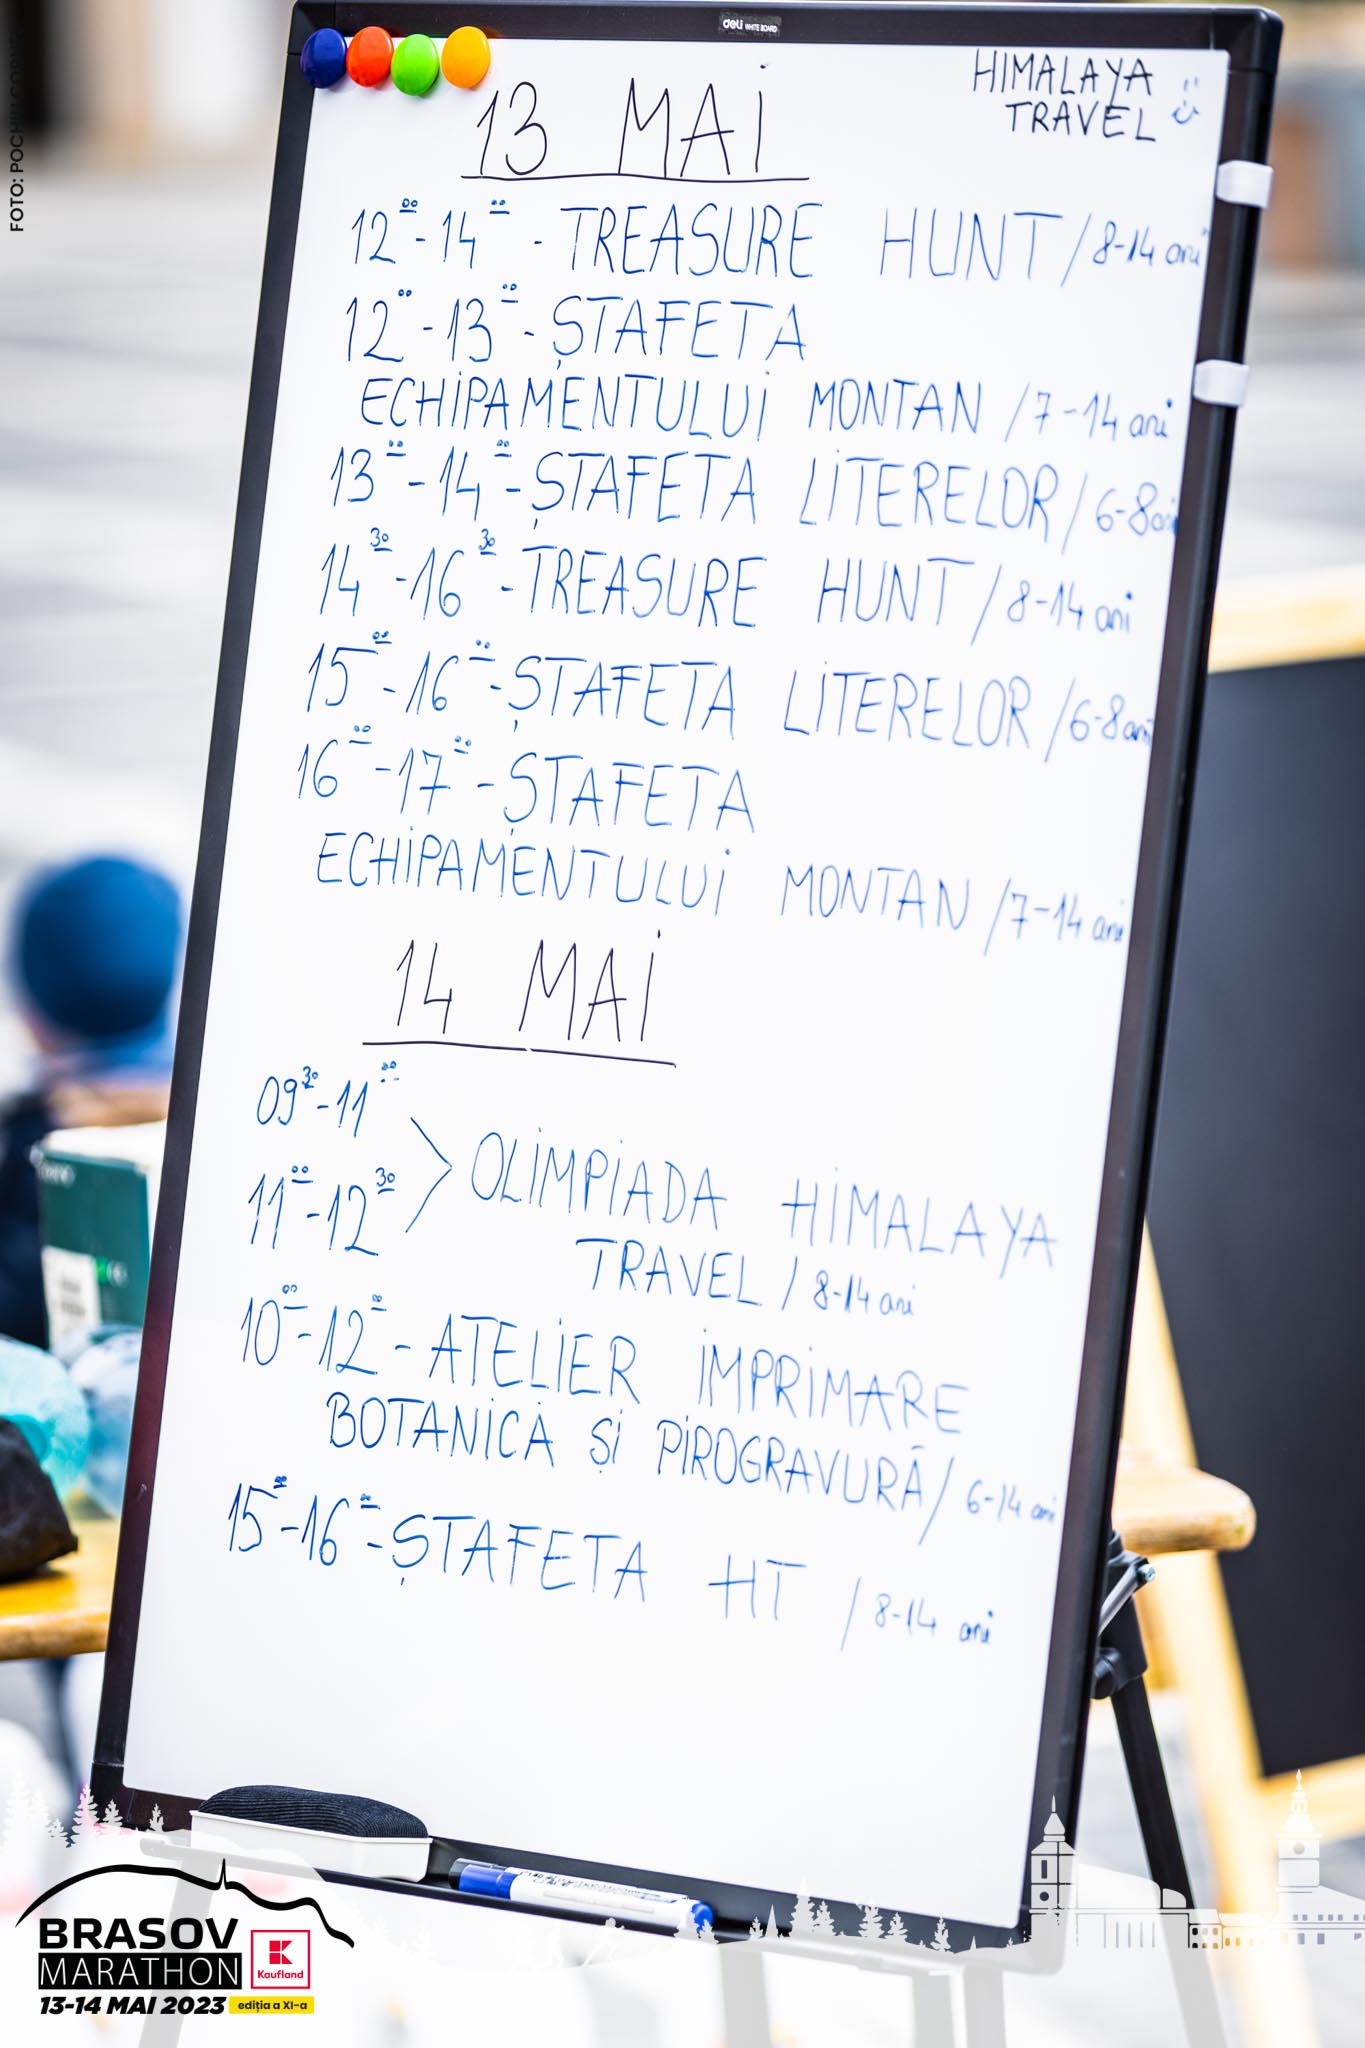 FOTO: POCHIU
deli WHITE BOARD
HIMALAYA
TRAVEL
13 MAI
12⁰⁰-14⁰⁰ - TREASURE HUNT / 8-14 ani
12⁰⁰-13⁰⁰ - ȘTAFETA
ECHIPAMENTULUI MONTAN / 7-14 ani
13⁰⁰-14⁰⁰ - ȘTAFETA LITERELOR / 6-8 ani
14³⁰-16³⁰ - TREASURE HUNT / 8-14 ani
15⁰⁰-16⁰⁰ - ȘTAFETA LITERELOR / 6-8 ani
16⁰⁰-17⁰⁰ - ȘTAFETA
ECHIPAMENTULUI MONTAN / 7-14 ani
14 MAI
09³⁰-11⁰⁰
11⁰⁰-12³⁰ > OLIMPIADA HIMALAYA
TRAVEL / 8-14 ani
10⁰⁰-12⁰⁰ - ATELIER IMPRIMARE
BOTANICĂ ȘI PIROGRAVURĂ / 6-14 ani
15⁰⁰-16⁰⁰ - ȘTAFETA HT / 8-14 ani
BRASOV
MARATHON
Kaufland
13-14 MAI 2023 ediția a XI-a